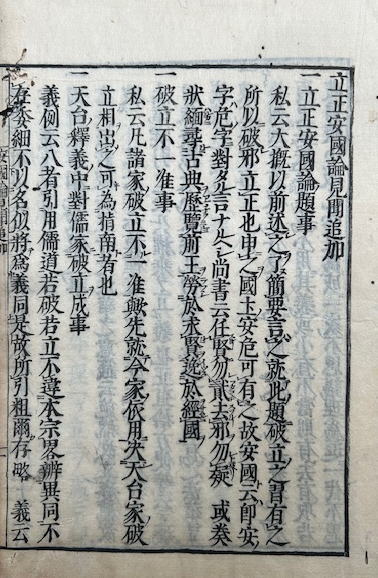 立正安國論見聞追加
一立正安國論題事
私云大概以前述之了簡要言之就此題破立之習有之
所以破邪立正也申之國土安危可有之故安國云即安
字危字對多言ナ尚書云任賢勿貳去邪勿疑 或奏
狀緬尋古典歷覽前王勞於求賢逸於經國
一破立不一准事
私云凡諸家破立不一准歟先就今家依用天台家破
立相出之可為指南者也
一天台釋義中對儒家破立成事
義例云八者引用儒道若破若立不違本宗畧辨異同不
存委細不以名似將為義同是故所引粗爾存略 義云